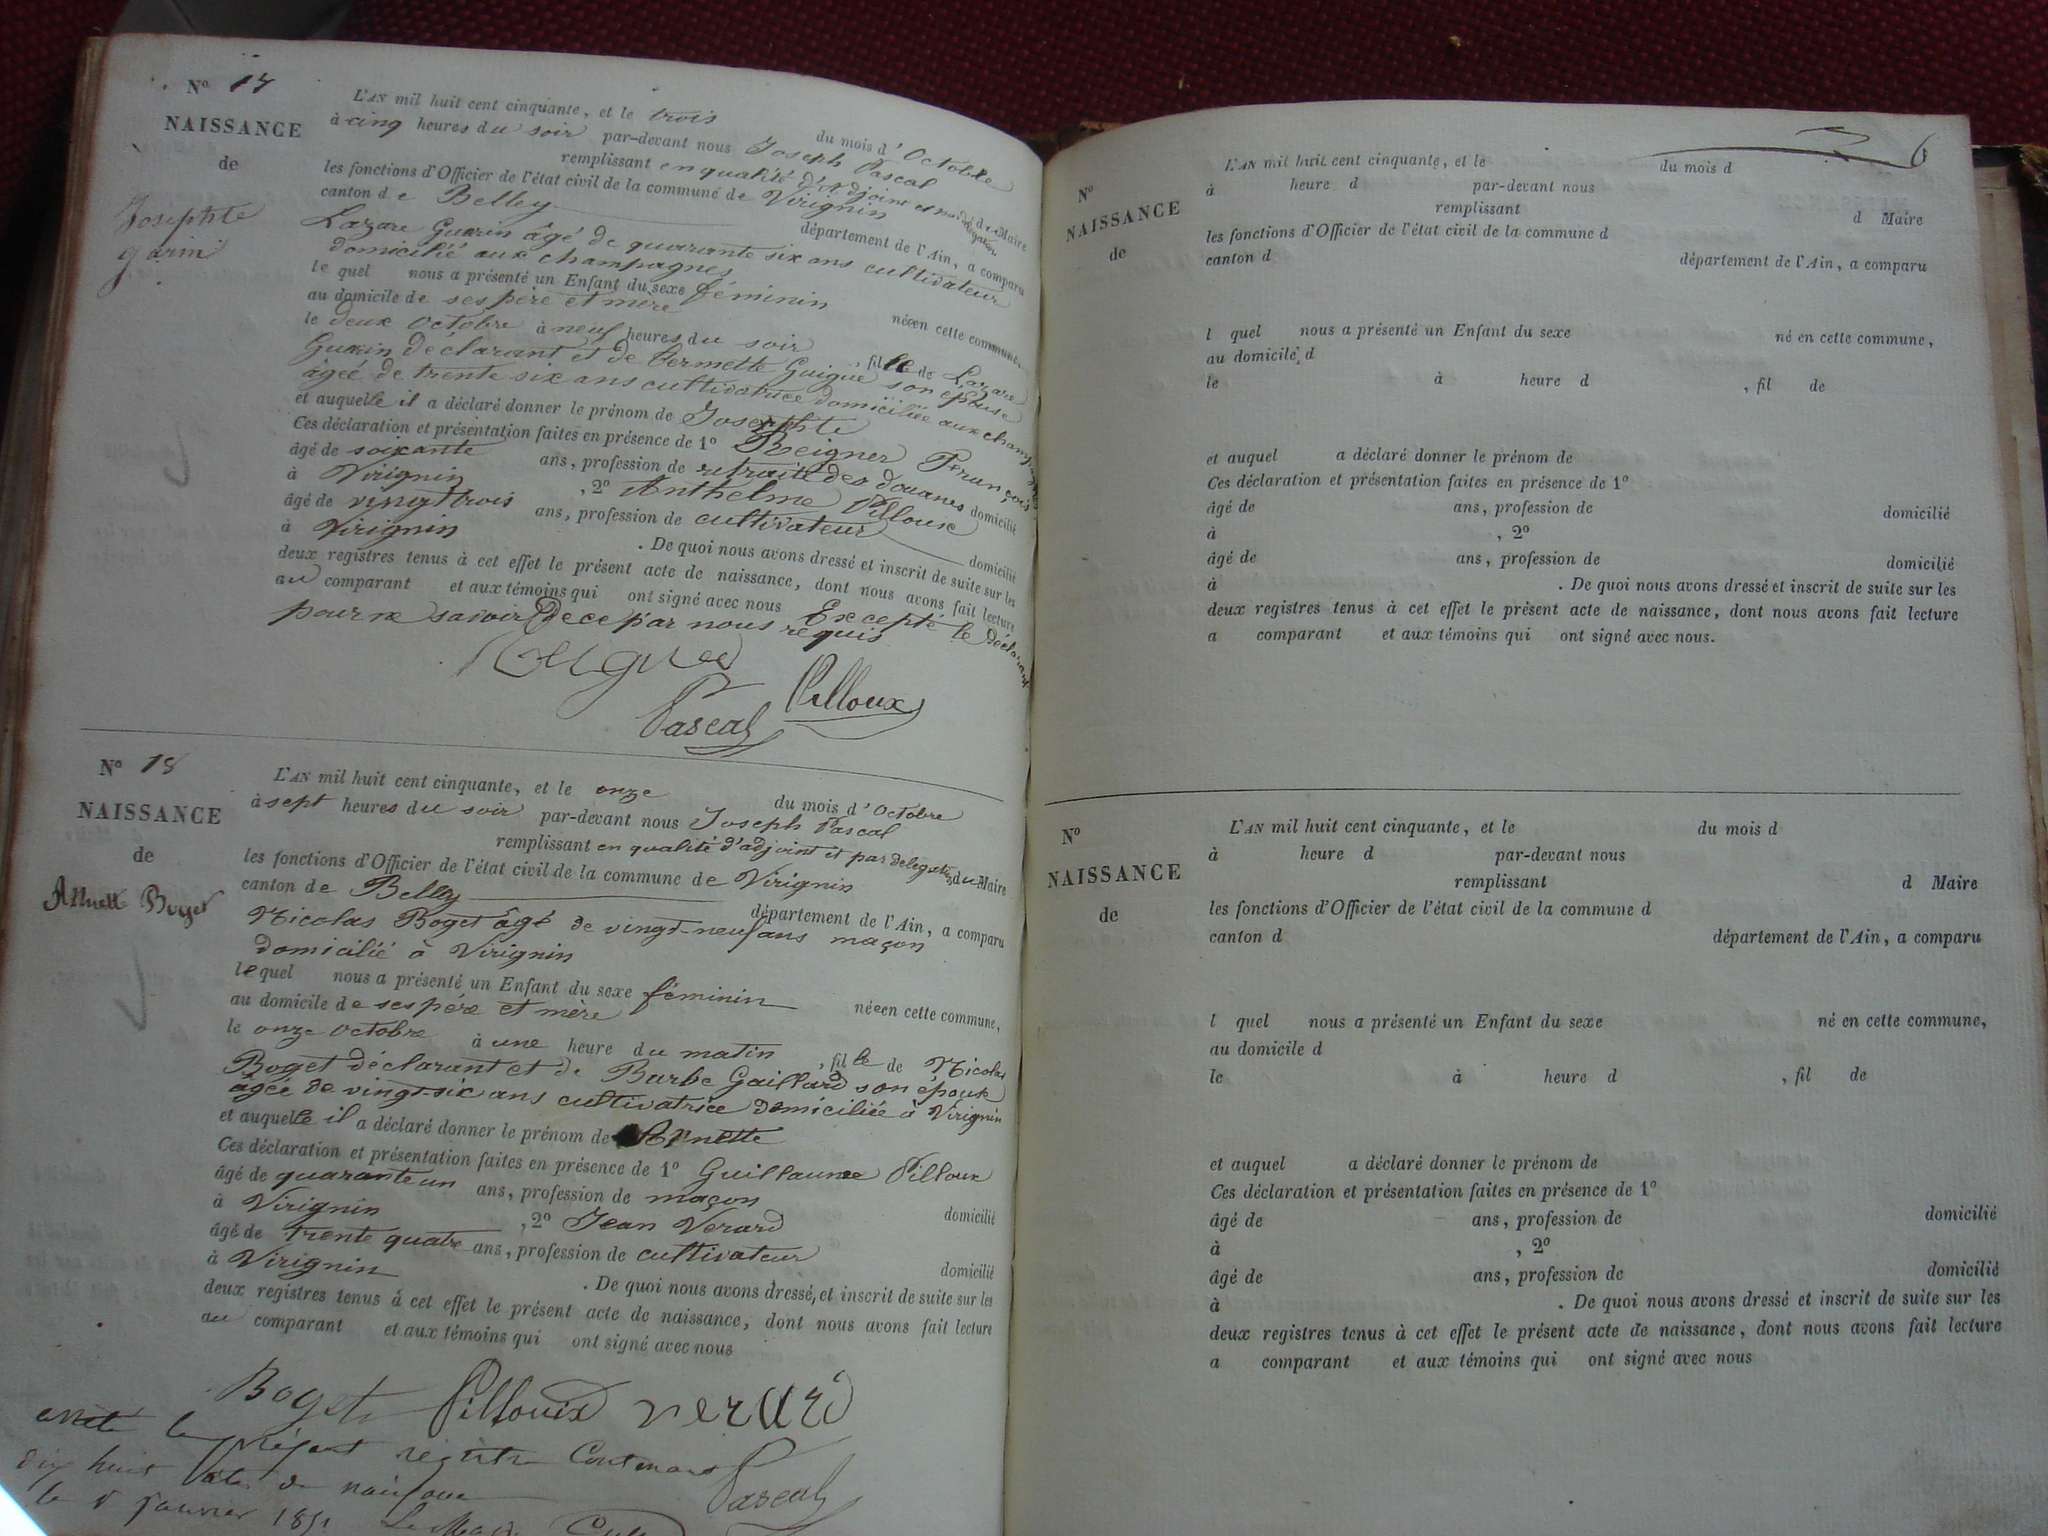 Nº 17
NAISSANCE
de
Josephte
L'AN mil huit cent cinquante, et le trois du mois d'Octobre
à cinq heures du soir par-devant nous Joseph Pascal
remplissant en qualité d'Adjoint et par délégation du Maire
les fonctions d'Officier de l'état civil de la commune de Virignin
canton de Belley département de l'Ain, a comparu
Lazare Guerin âgé de quarante six ans cultivateur
domicilié aux champagnes
lequel nous a présenté un Enfant du sexe féminin née en cette commune,
au domicile de ses père et mère
le deux Octobre à neuf heures du soir, fille de Lazare
Guerin déclarant et de Permette Guigue son épouse
âgée de trente six ans cultivatrice domiciliée aux champagnes
et auquelle il a déclaré donner le prénom de Josephte
Ces déclaration et présentation faites en présence de 1º Reigner François
âgé de soixante ans, profession de retraité des douanes domicilié
à Virignin, 2º Anthelme Pilloux
âgé de vingt trois ans, profession de cultivateur domicilié
à Virignin. De quoi nous avons dressé et inscrit de suite sur les
deux registres tenus à cet effet le présent acte de naissance, dont nous avons fait lecture
au comparant et aux témoins qui ont signé avec nous Excepté le Déclarant
pour ne savoir De ce par nous requis
Pilloux
Pascal
Nº 18
NAISSANCE
de
Annette Boget
L'AN mil huit cent cinquante, et le onze du mois d'Octobre
à sept heures du soir par-devant nous Joseph Pascal
remplissant en qualité d'adjoint et par delegation du Maire
les fonctions d'Officier de l'état civil de la commune de Virignin
canton de Belley département de l'Ain, a comparu
Nicolas Boget âgé de vingt-neuf ans maçon
domicilié à Virignin
lequel nous a présenté un Enfant du sexe féminin née en cette commune,
au domicile de ses père et mère
le onze Octobre à une heure du matin, fille de Nicolas
Boget déclarant et de Barbe Gaillard son épouse
âgée de vingt-six ans cultivatrice domiciliée à Virignin
et auquelle il a déclaré donner le prénom de Annette
Ces déclaration et présentation faites en présence de 1º Guillaume Pilloux
âgé de quarante un ans, profession de maçon domicilié
à Virignin, 2º Jean Verard
âgé de trente quatre ans, profession de cultivateur domicilié
à Virignin. De quoi nous avons dressé, et inscrit de suite sur les
deux registres tenus à cet effet le présent acte de naissance, dont nous avons fait lecture
au comparant et aux témoins qui ont signé avec nous
Boget Pilloux verard
Pascal
arrêté le présent registre contenant
dix huit actes de naissance
le janvier 1851 Le Maire
6
Nº
NAISSANCE
de
L'AN mil huit cent cinquante, et le du mois d
à heure d par-devant nous
remplissant d Maire
les fonctions d'Officier de l'état civil de la commune d
canton d département de l'Ain, a comparu
l quel nous a présenté un Enfant du sexe né en cette commune,
au domicile d
le à heure d, fil de
et auquel a déclaré donner le prénom de
Ces déclaration et présentation faites en présence de 1º
âgé de ans, profession de domicilié
à, 2º
âgé de ans, profession de domicilié
à. De quoi nous avons dressé et inscrit de suite sur les
deux registres tenus à cet effet le présent acte de naissance, dont nous avons fait lecture
a comparant et aux témoins qui ont signé avec nous.
Nº
NAISSANCE
de
L'AN mil huit cent cinquante, et le du mois d
à heure d par-devant nous
remplissant d Maire
les fonctions d'Officier de l'état civil de la commune d
canton d département de l'Ain, a comparu
l quel nous a présenté un Enfant du sexe né en cette commune,
au domicile d
le à heure d, fil de
et auquel a déclaré donner le prénom de
Ces déclaration et présentation faites en présence de 1º
âgé de ans, profession de domicilié
à, 2º
âgé de ans, profession de domicilié
à. De quoi nous avons dressé et inscrit de suite sur les
deux registres tenus à cet effet le présent acte de naissance, dont nous avons fait lecture
a comparant et aux témoins qui ont signé avec nous